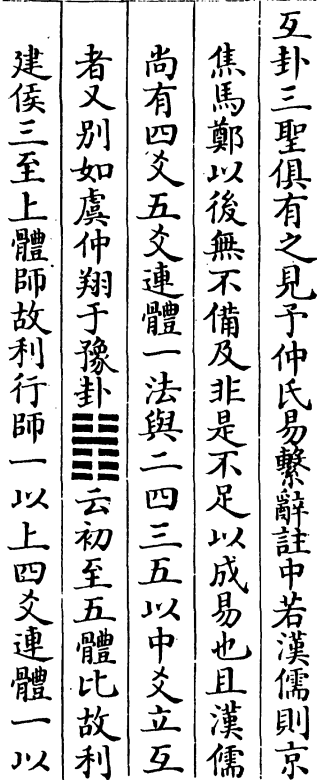 互卦三聖俱有之見予仲氏易繫辭註中若漢儒則京
焦馬鄭以後無不備及非是不足以成易也且漢儒
尚有四爻五爻連體一法與二四三五以中爻立互
者又別如虞仲翔于豫卦䷏云初至五體比故利
建侯三至上體師故利行師一以上四爻連體一以